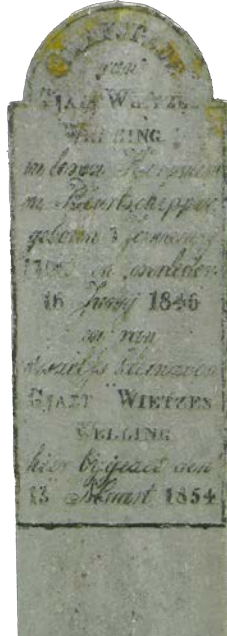 van
WIETZES
WELLING
in leven
Beurtschipper
geboren 3 January
en overleden
16 Juny 1846
en van
deszelfs kleinzoon
GJALT WIETZES
WELLING
hier bijgezet den
13 Maart 1854